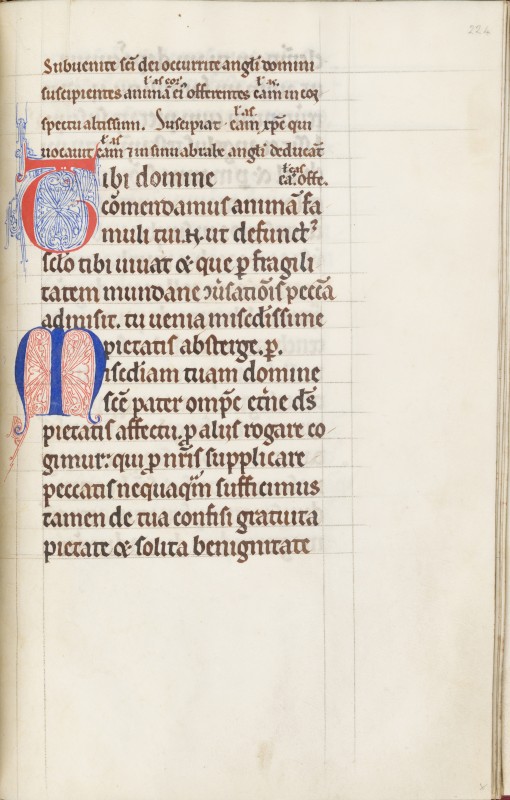 224
Subuenite sc̄i dei occurrite angli domini
l' as cor̄ l' as
suscipientes animā ei' offerentes eam in cōs
l' as
pectu altissimi. Suscipiat eam xp̄c qui
l' as
uocauit eam ⁊ in sinu abrahe angli deducāt
l' eas
Tibi domine eā. offe.
cōmendamus animā fa
muli tui .N. ut defunct᷒
sc̄lo tibi uiuat & que ꝑ fragili
tatem mundane ꝯuersatiōis peccā
admisit. tu uenia misc̄dissime
pietatis absterge. ꝑ.
Miscdiam tuam domine
sc̄e pater omp̄c et̄ne d̄s
pietatis affectu. ꝑ aliis rogare co
gimur: qui ꝑ nr̄is supplicare
peccatis nequaqͣm sufficimus
tamen de tua confisi gratuita
pietate & solita benignitate